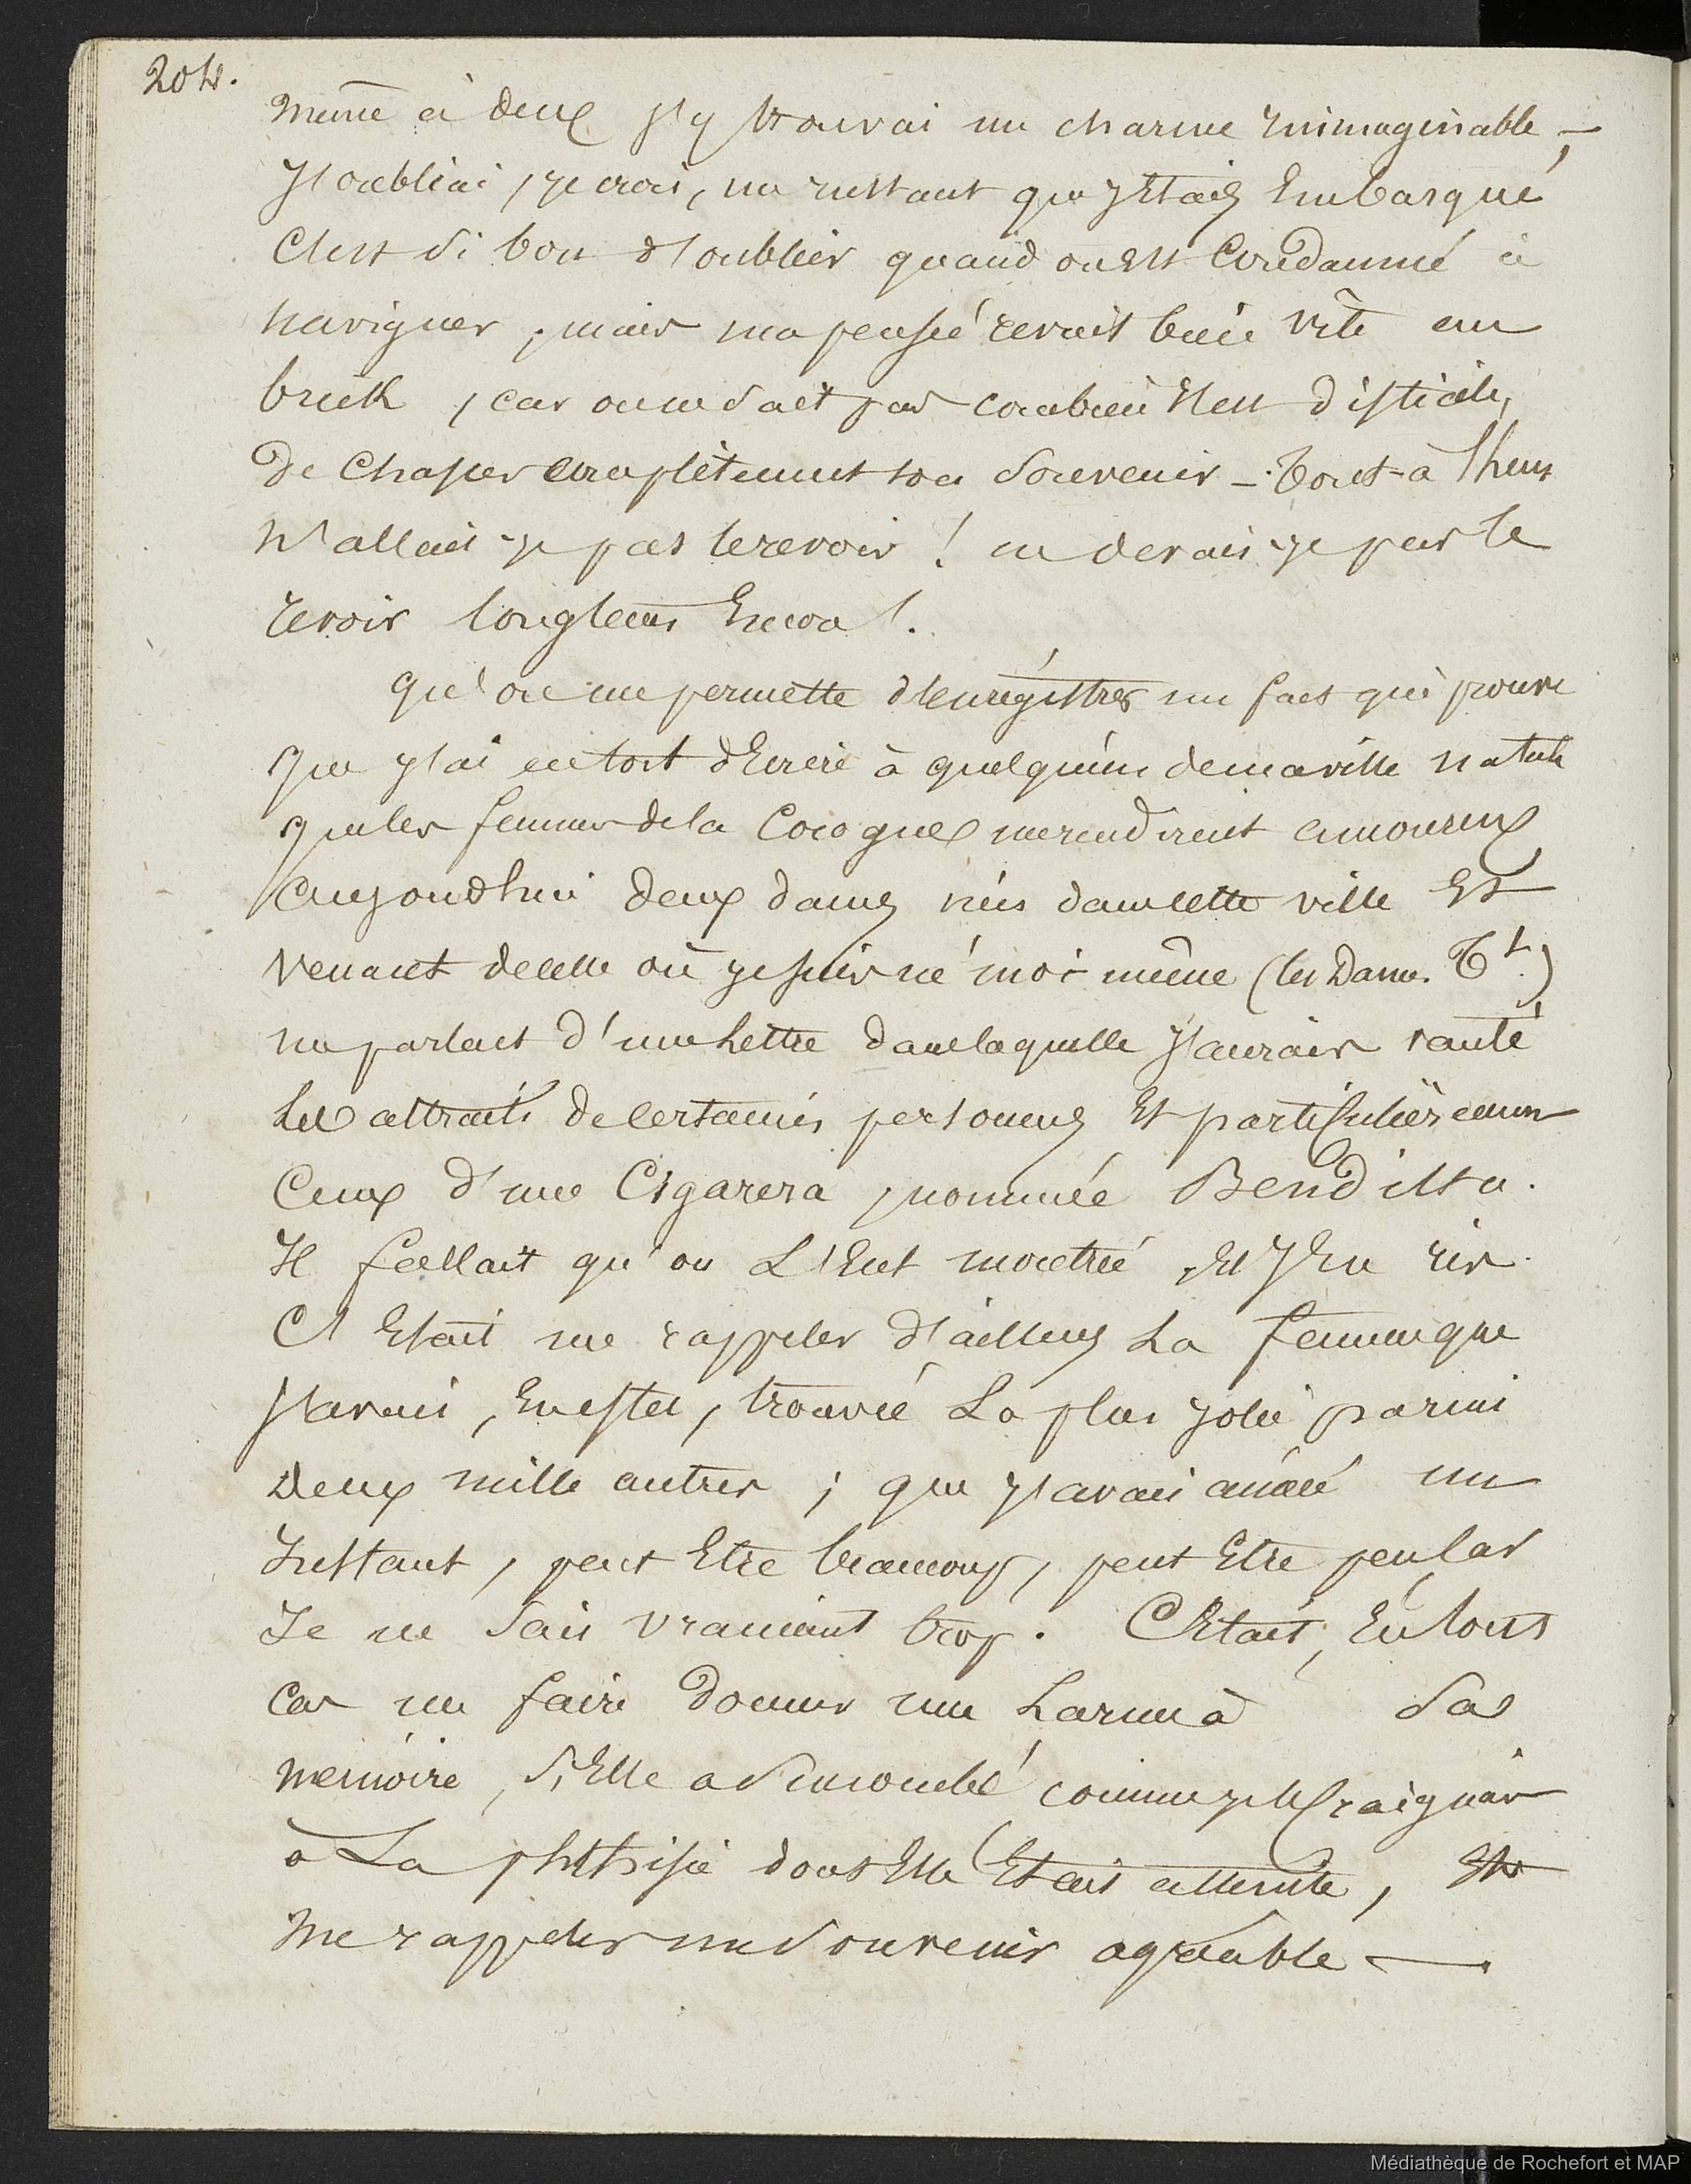 204.
même à deux j'y trouvai un charme inimaginable ;—
J'oubliai, je crois, un instant que j'Etais Embarqué
C'est si bon d'oublier quand on Est Condamné à
naviguer ; mais ma pensée revint bien vite au
brick, car on ne sait pas combien il est difficile,
De Chasser complètement son souvenir – . Tout-à l'heure
N'allais je pas le revoir ! ne devais je pas le
revoir longtems Encore !.
qu'on me permette d'enrégistrer un fait qui prouve
que j'ai eu tort d'Ecrire à quelqu'un de ma ville natale
que les femmes de la Corogne me rendirent amoureux
aujourdhui deux dames nées dans cette ville Et
venant de celle où je suis né moi même (les Dames Tt.)
me parlent d'une Lettre dans laquelle J'aurais vanté
Les attraits de certaines personnes Et particulièrement
Ceux d'une Cigarera, nommée Benditta.
Il fallait qu'on L'Eut montrée, Et J'En ris.
C'Etait me rappeler d'ailleurs La femme que
J'avais, En effet, trouvée La plus jolie parmi
Deux mille autres ; que j'avais aimée un
Instant, peut Etre beaucoup, peut Etre peu, car
Je ne sais vraiment trop. C'Etait, En tous
cas me faire donner une Larme à sa
mémoire, si Elle a succombé comme je le craignais
à La phthisie dont Elle Etait atteinte, Et
Me rappeler un souvenir agréable —.
Médiathèque de Rochefort et MAP